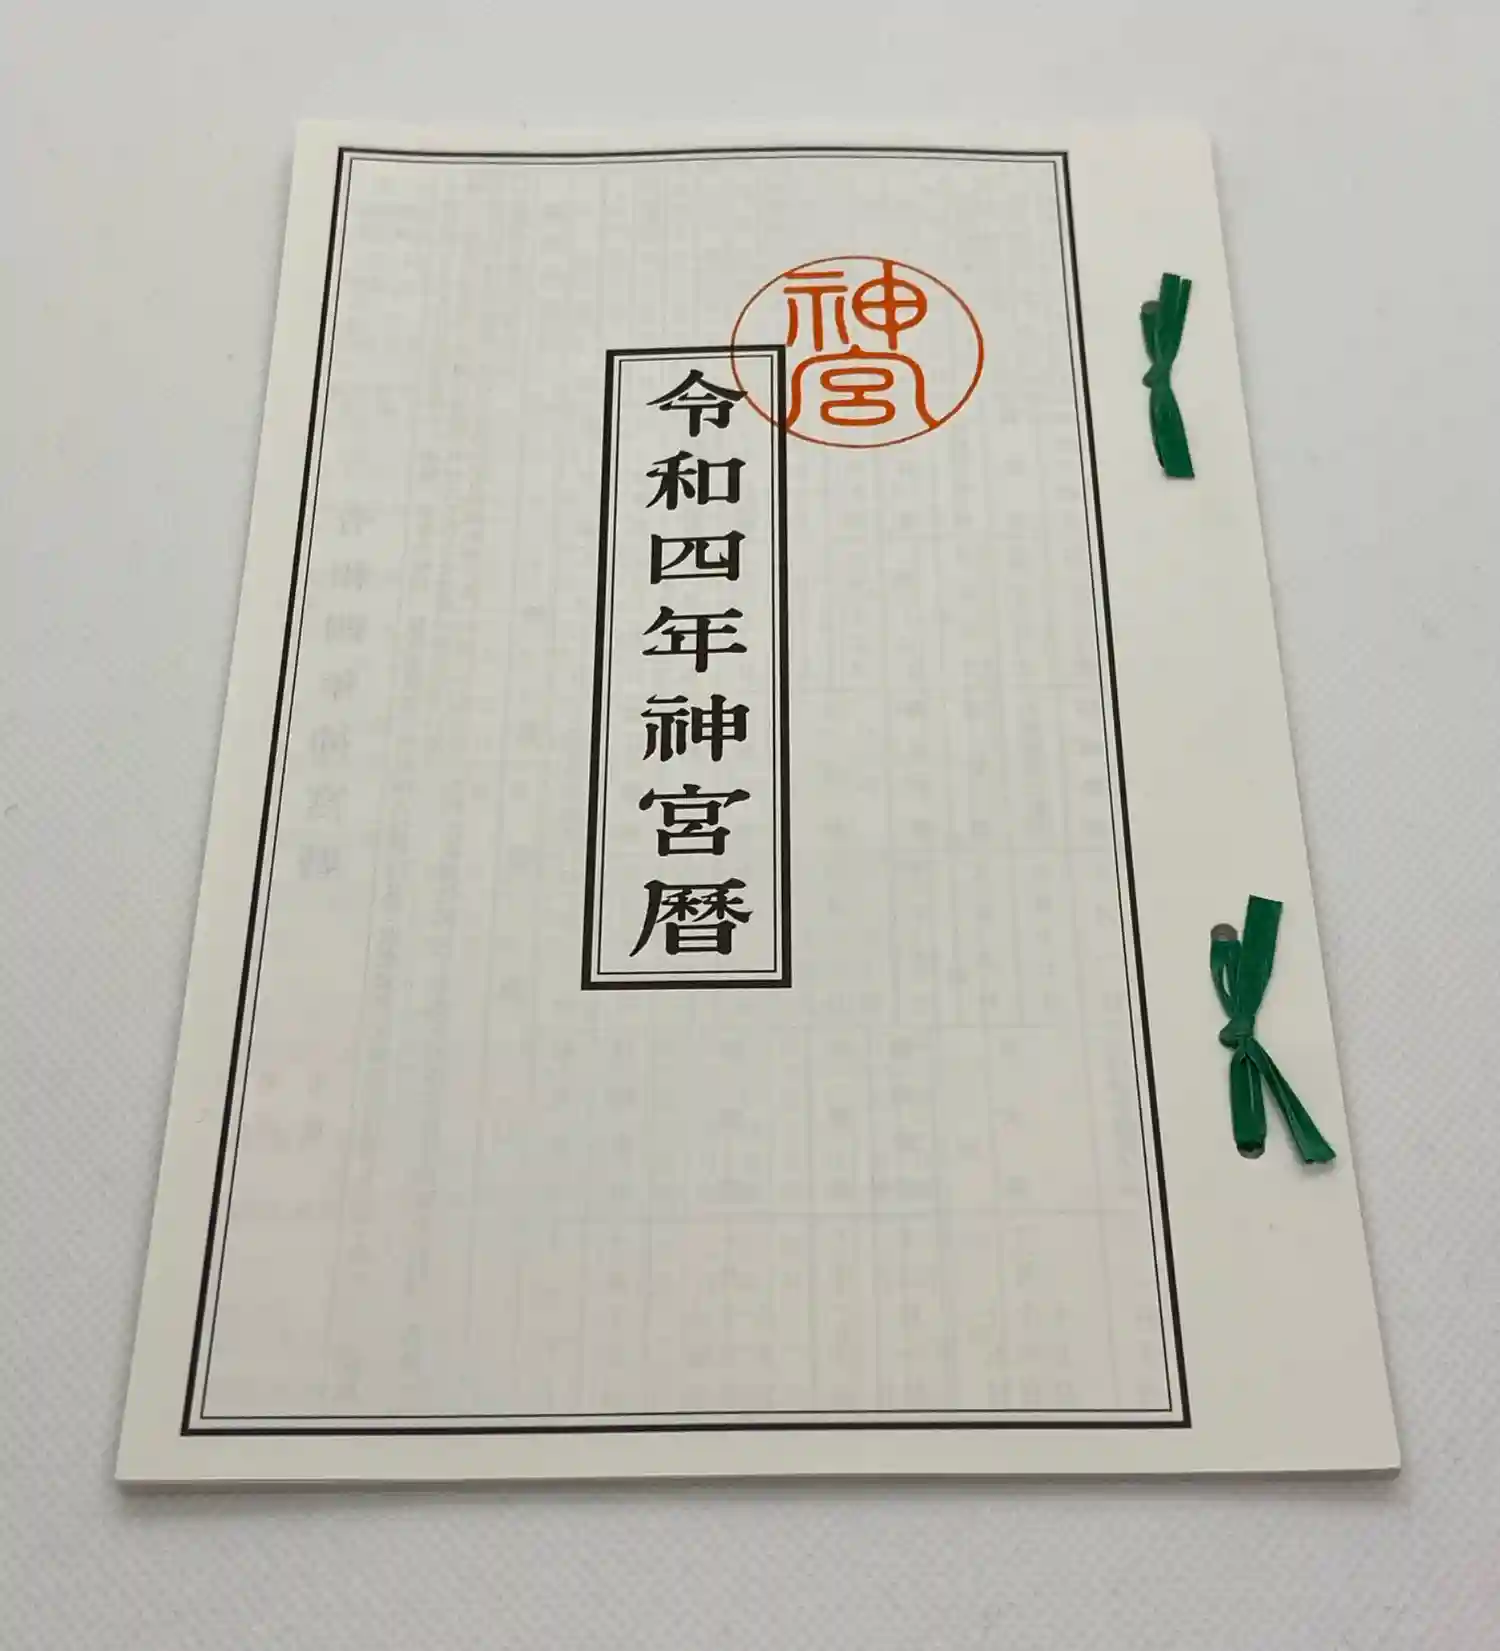 神宮
令和四年神宮暦